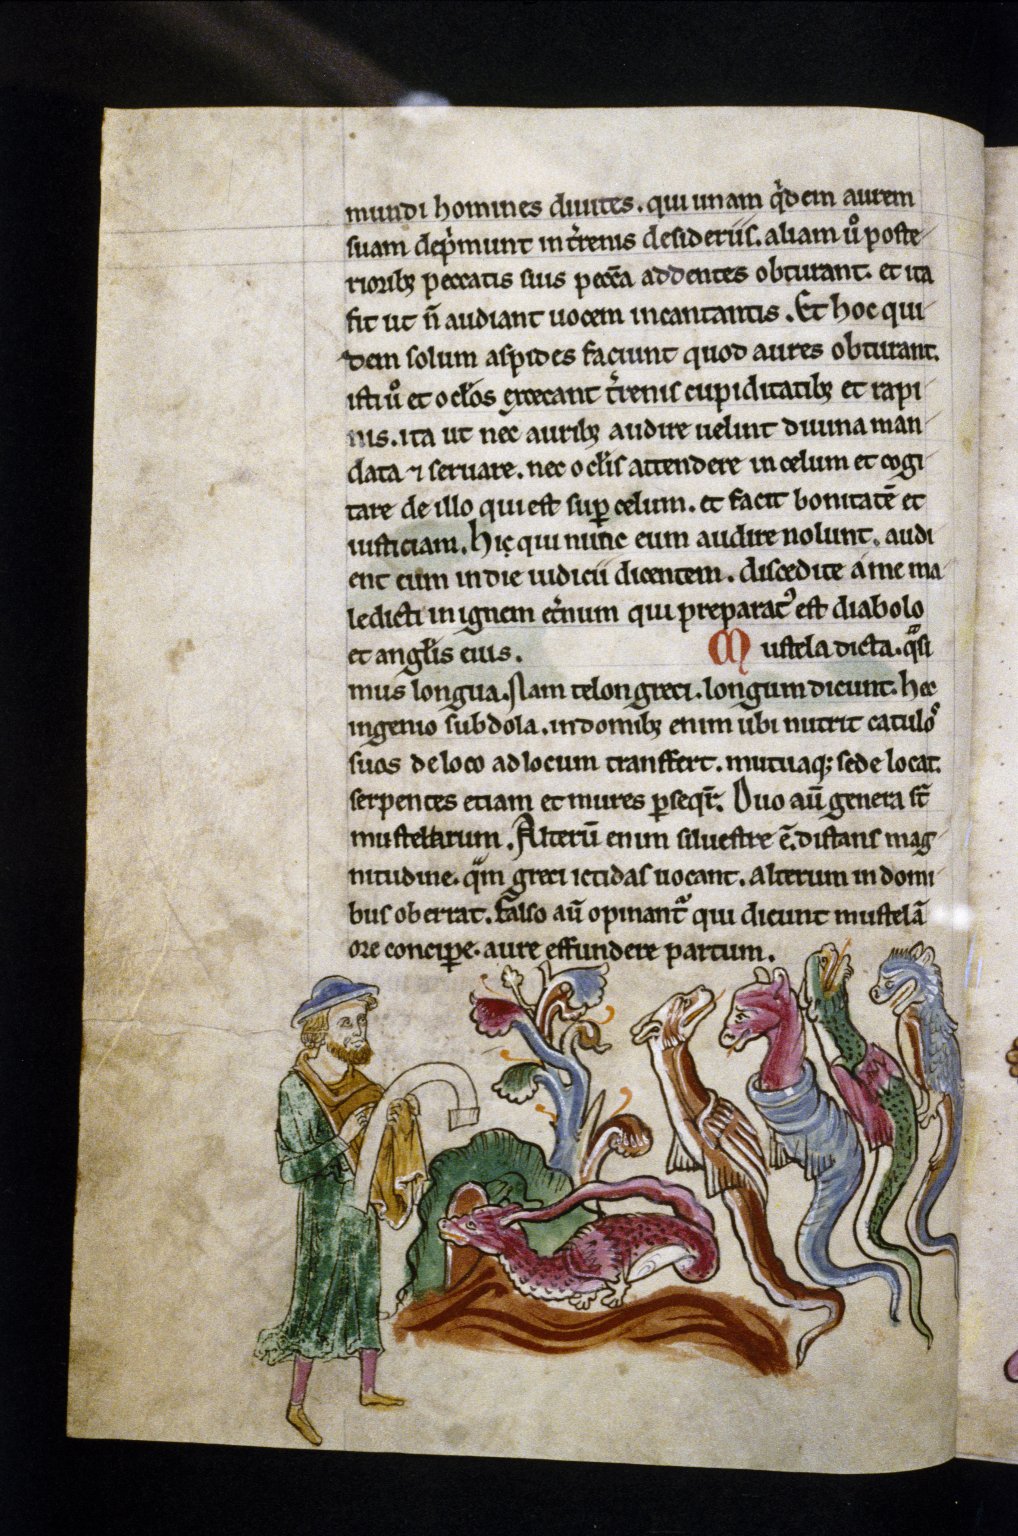 mundi homines diuites. qui unam q̇dem aurem
suam dep̄munt in t̄renis desideriis. aliam ů poste
riorib; peccatis suis pecc̄a addentes obturant. et ita
fit ut n̄ audiant uocem incantantis. Et hoc qui
dem solum aspides faciunt quod aures obturant.
isti ů et ocl̄os excecant t̄renis cupiditatib; et rapi
nis. ita ut nec aurib; audire uelint diuina man
data ⁊ seruare. nec ocl̄is attendere in celum et cogi
tare de illo qui est sup̱ celum. et facit bonitatē et
iusticiam. Hic qui nunc eum audire nolunt. audi
ent eum in die iudicii dicentem. discedite a me ma
ledicti in ignem et̄num qui preparat᾿ est diabolo
et angl̄is eius. Mustela dicta. q̄si
mus longua. Nam telon greci. longum dicunt. hec
ingenio subdola. in domib; enim ubi nutrit catulos
suos de loco ad locum transfert. mutuaq; sede locat.
serpentes etiam et mures p̱seqr̄. Duo aū genera st̄
mustelarum. Alterū enim siluestre ē. distans mag
nitudine. q̄m greci ictidas uocant. alterum in domi
bus oberrat. falso aū opinant᾿ qui dicunt mustelā
ore concip̱e. aure effundere partum.